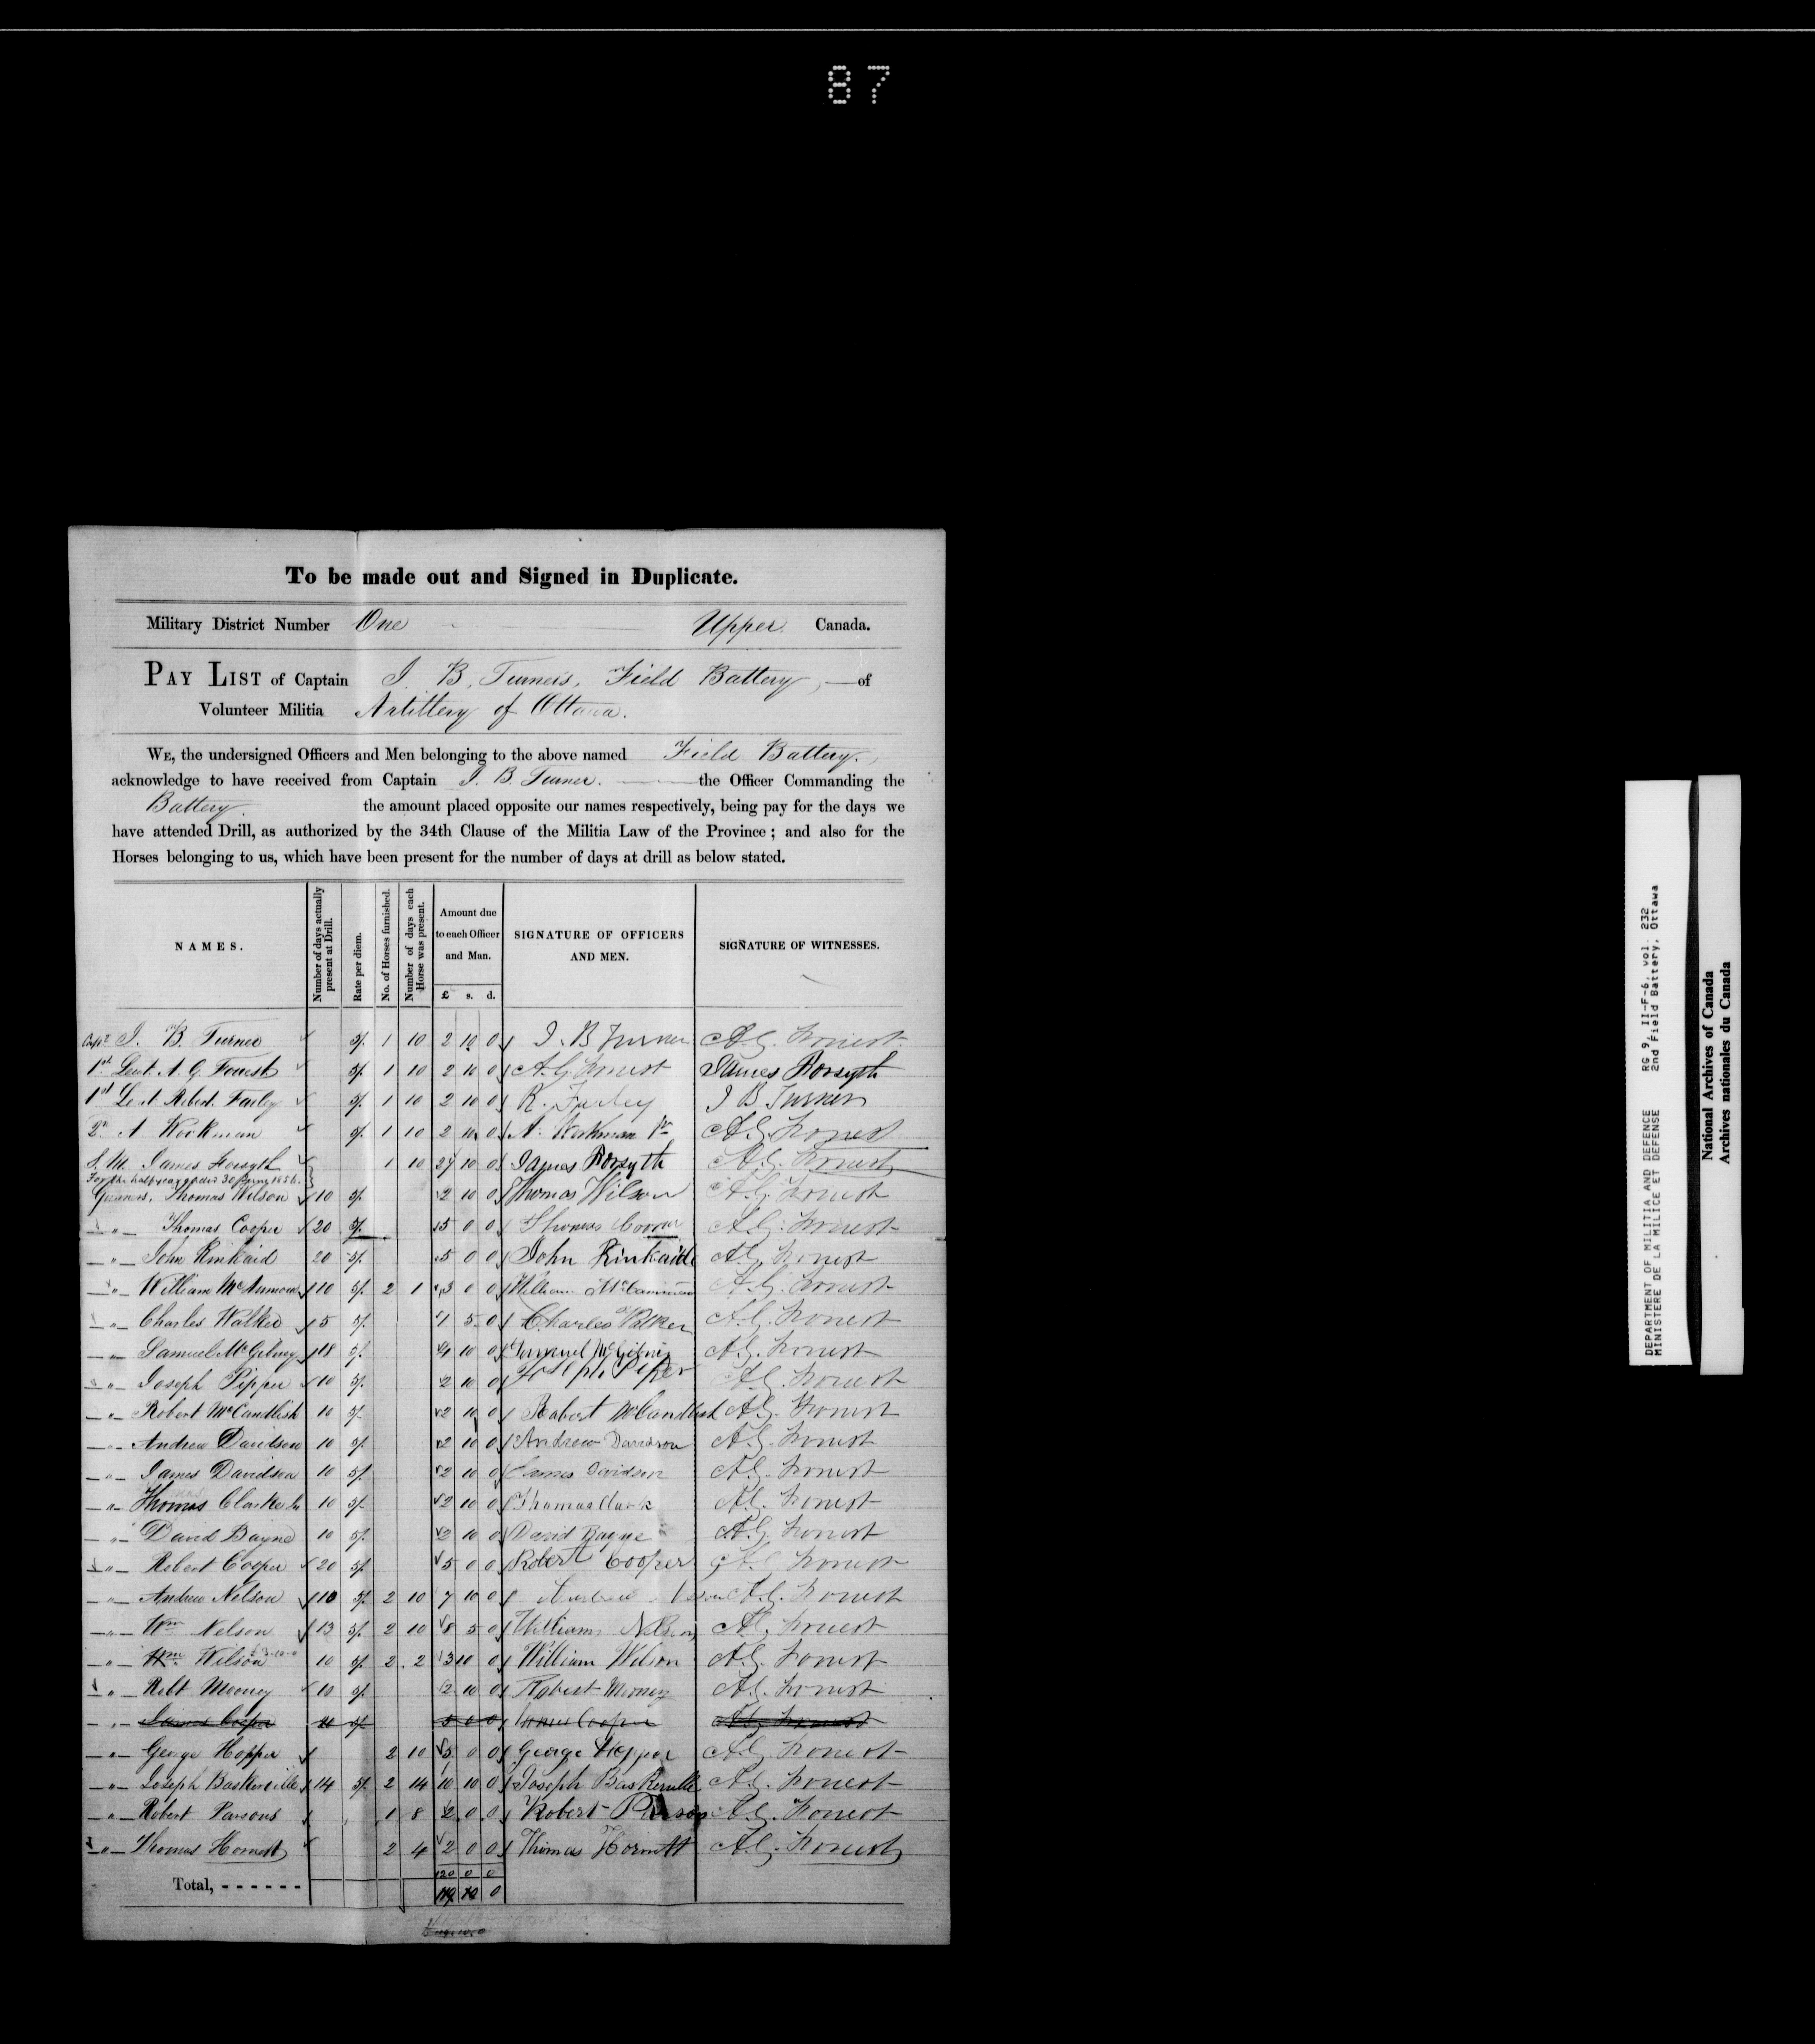 87
To be made out and Signed in Duplicate.
Military District Number One Upper Canada.
PAY LIST of Captain J. B. Turner's, Field Battery, of
Volunteer Militia Artillery of Ottawa.
WE, the undersigned Officers and Men belonging to the above named Field Battery,
acknowledge to have received from Captain J. B. Turner. the Officer Commanding the
Battery the amount placed opposite our names respectively, being pay for the days we
have attended Drill, as authorized by the 34th Clause of the Militia Law of the Province; and also for the
Horses belonging to us, which have been present for the number of days at drill as below stated.
NAMES. Number of days actually present at Drill. Rate per diem. No. of Horses furnished. Number of days each Horse was present. Amount due to each Officer and Man. £ s. d. SIGNATURE OF OFFICERS AND MEN. SIGNATURE OF WITNESSES.
Capt J. B. Turner 5/ 1 10 2 10 0 J. B Turner A.G. Forrest
1st Lieut. A. G. Forrest 5/ 1 10 2 10 0 A.G. Forrest James Forsyth
1st Lieut Robert Farley 5/ 1 10 2 10 0 R. Farley J B Turner
2n A Workman 5/ 1 10 2 10 0 A. Workman Jr A.G. Forrest
S. M. James Forsyth 1 10 27 10 0 James Forsyth A.G. Forrest
For the half year ended 30 June 1856.
Gunners, Thomas Wilson 10 5/ 2 10 0 Thomas Wilson A.G. Forrest
" Thomas Cooper 20 5/ 5 0 0 Thomas Cooper A.G. Forrest
" John Kinkaid 20 5/ 5 0 0 John Kinkaide A.G. Forrest
" William McAmmond 10 5/ 2 1 3 0 0 William A.G. Forrest
" Charles Walker 5 5/ 1 5 0 Charles Walker A.G. Forrest
" Samuel McGilney 18 5/ 4 10 0 Samuel A.G. Forrest
" Joseph Pipper 10 5/ 2 10 0 Joseph Piper A.G. Forrest
" Robert McCandlish 10 5/ 2 10 0 Robert McCandlish A.G. Forrest
" Andrew Davidson 10 5/ 2 10 0 Andrew Davidson A.G. Forrest
" James Davidson 10 5/ 2 10 0 James Davidson A.G. Forrest
" Thomas Clarke 10 5/ 2 10 0 Thomas Clark A.G. Forrest
" David Bayne 10 5/ 2 10 0 David Bayne A.G. Forrest
" Robert Cooper 20 5/ 5 0 0 Robert Cooper A.G. Forrest
" Andrew Nelson 10 5/ 2 10 7 10 0 Andrew A.G. Forrest
" Wm Nelson 13 5/ 2 10 8 5 0 William Nelson A.G. Forrest
" Wm Wilson 10 5/ 2 2 3 10 0 William Wilson A.G. Forrest
" Robt Mooney 10 5/ 2 10 0 Robert Mooney A.G. Forrest
" James Cooper 5/ 5 0 0 James Cooper A.G. Forrest
" George Hopper 2 10 5 0 0 George Hopper A.G. Forrest
" Joseph Baskerville 14 5/ 2 14 10 10 0 Joseph Baskerville A.G. Forrest
" Robert Parsons 1 8 2 0 0 Robert Parsons A.G. Forrest
" Thomas Hornett 2 4 2 0 0 Thomas Hornett A.G. Forrest
120 0 0
Total, - - - - - - 119 10 0
DEPARTMENT OF MILITIA AND DEFENCE RG 9, II-F-6, vol. 232
MINISTERE DE LA MILICE ET DEFENSE 2nd Field Battery, Ottawa
National Archives of Canada
Archives nationales du Canada